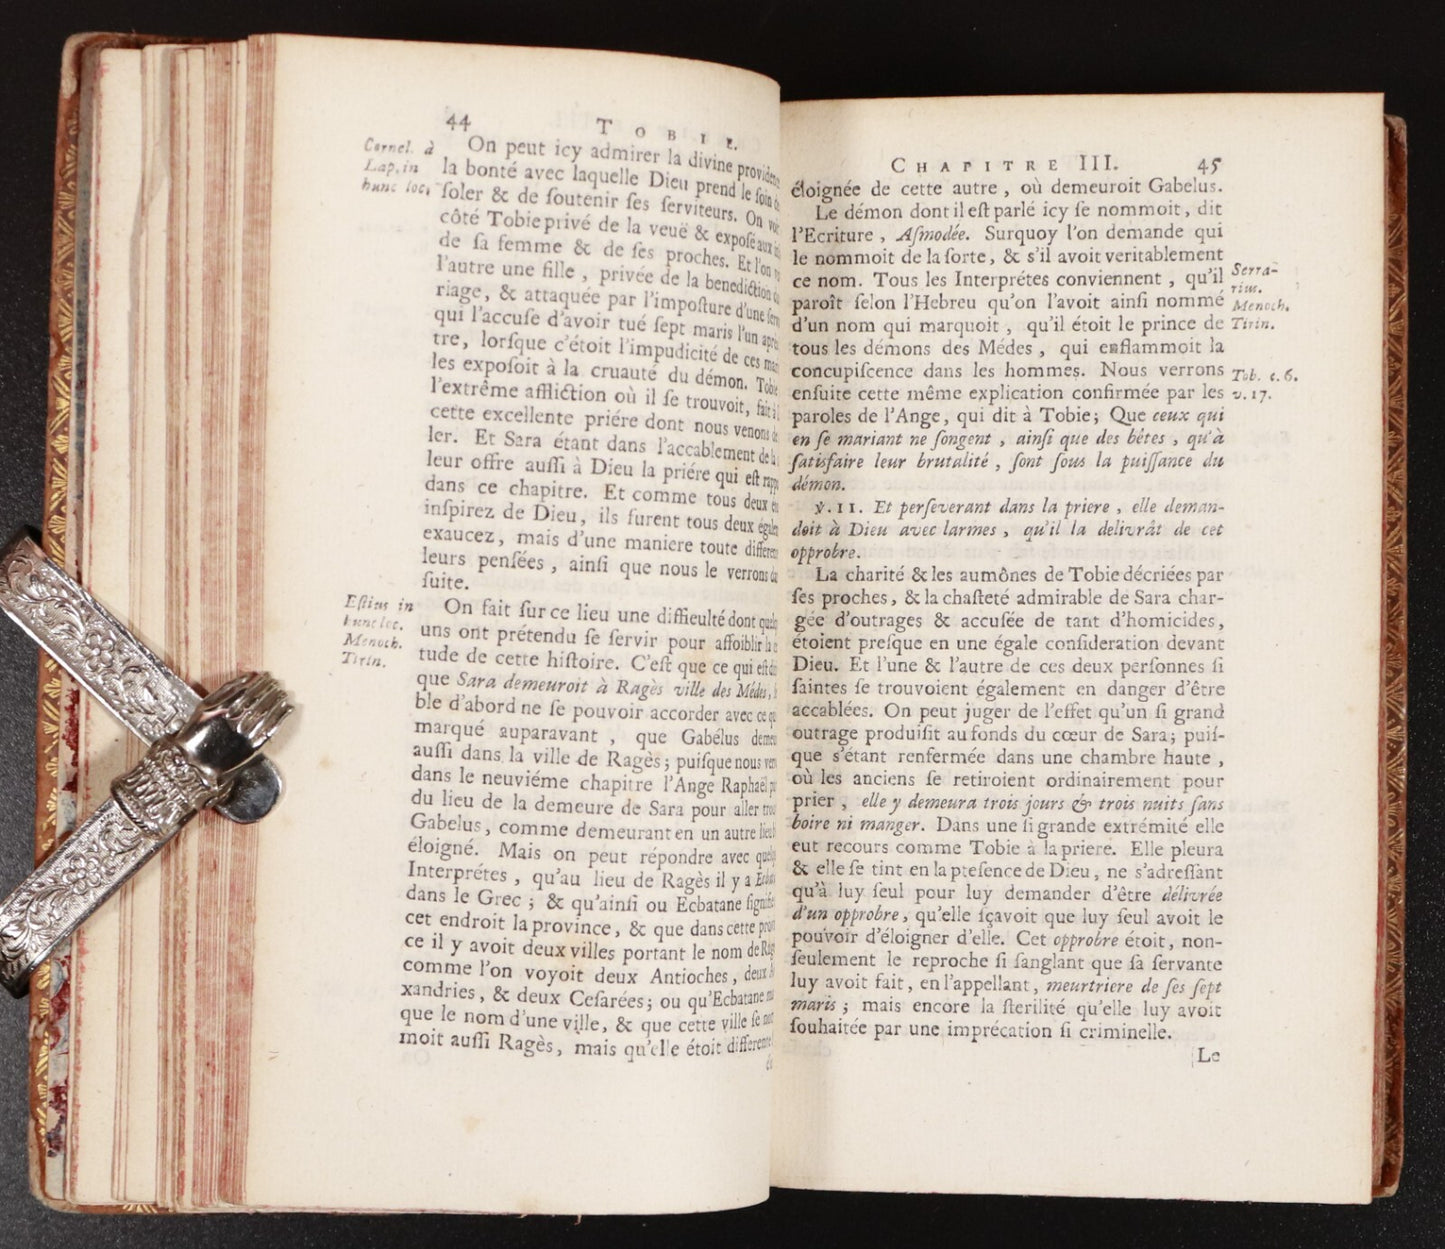 44 TOBIE.
Cornel. à
Lap. in
hunc loc.
On peut icy admirer la divine
la bonté avec laquelle Dieu prend le ſoin
ſoler & de ſoutenir ſes ſerviteurs. On
côté Tobie privé de la veuë & expoſé aux
de ſa femme & de ſes proches. Et l'on
l'autre une fille, privée de la benediction
riage, & attaquée par l'impoſture d'une
qui l'accuſe d'avoir tué ſept maris l'un
tre, lorſque c'étoit l'impudicité de ces
les expoſoit à la cruauté du démon.
l'extrême affliction où il ſe trouvoit, fait
cette excellente priére dont nous venons
ler. Et Sara étant dans l'accablement de
leur offre auſſi à Dieu la priére qui eſt
dans ce chapitre. Et comme tous deux
inſpirez de Dieu, ils furent tous deux
exaucez, mais d'une maniere toute
leurs penſées, ainſi que nous le verrons
ſuite.
Eſtius in
hunc loc.
Menoch.
Tirin.
On fait ſur ce lieu une difficulté dont
uns ont prétendu ſe ſervir pour affoiblir
tude de cette hiſtoire. C'eſt que ce qui eſt
que Sara demeuroit à Ragès ville des Médes,
ble d'abord ne ſe pouvoir accorder avec ce
marqué auparavant, que Gabélus
auſſi dans la ville de Ragès; puiſque nous
dans le neuviéme chapitre l'Ange Raphaël
du lieu de la demeure de Sara pour aller
Gabelus, comme demeurant en un autre
éloigné. Mais on peut répondre avec
Interprétes, qu'au lieu de Ragès il y a
dans le Grec; & qu'ainſi ou Ecbatane
cet endroit la province, & que dans cette
ce il y avoit deux villes portant le nom de
comme l'on voyoit deux Antioches, deux
xandries, & deux Ceſarées; ou qu'Ecbatane
que le nom d'une ville, & que cette ville ſe
moit auſſi Ragès, mais qu'elle étoit
CHAPITRE III. 45
éloignée de cette autre, où demeuroit Gabelus.
Le démon dont il eſt parlé icy ſe nommoit, dit
l'Ecriture, Aſmodée. Surquoy l'on demande qui
le nommoit de la ſorte, & s'il avoit veritablement
ce nom. Tous les Interprétes conviennent, qu'il
paroît ſelon l'Hebreu qu'on l'avoit ainſi nommé
d'un nom qui marquoit, qu'il étoit le prince de
tous les démons des Médes, qui enflammoit la
concupiſcence dans les hommes. Nous verrons
enſuite cette même explication confirmée par les
paroles de l'Ange, qui dit à Tobie; Que ceux qui
en ſe mariant ne ſongent, ainſi que des bêtes, qu'à
ſatisfaire leur brutalité, ſont ſous la puiſſance du
démon.
Serra-
rius.
Menoch.
Tirin.
Tob. c. 6.
v. 17.
℣. 11. Et perſeverant dans la priere, elle deman-
doit à Dieu avec larmes, qu'il la delivrât de cet
opprobre.
La charité & les aumônes de Tobie décriées par
ſes proches, & la chaſteté admirable de Sara char-
gée d'outrages & accuſée de tant d'homicides,
étoient preſque en une égale conſideration devant
Dieu. Et l'une & l'autre de ces deux perſonnes ſi
ſaintes ſe trouvoient également en danger d'être
accablées. On peut juger de l'effet qu'un ſi grand
outrage produiſit au fonds du cœur de Sara; puiſ-
que s'étant renfermée dans une chambre haute,
où les anciens ſe retiroient ordinairement pour
prier, elle y demeura trois jours & trois nuits ſans
boire ni manger. Dans une ſi grande extrémité elle
eut recours comme Tobie à la priere. Elle pleura
& elle ſe tint en la preſence de Dieu, ne s'adreſſant
qu'à luy ſeul pour luy demander d'être délivrée
d'un opprobre, qu'elle ſçavoit que luy ſeul avoit le
pouvoir d'éloigner d'elle. Cet opprobre étoit, non-
ſeulement le reproche ſi ſanglant que ſa ſervante
luy avoit fait, en l'appellant, meurtriere de ſes ſept
maris; mais encore la ſterilité qu'elle luy avoit
ſouhaitée par une imprécation ſi criminelle.
Le